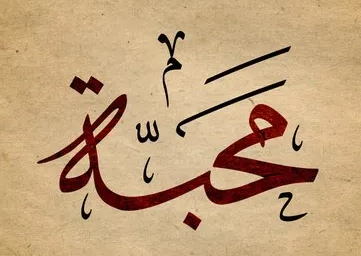 مَحَبَّة